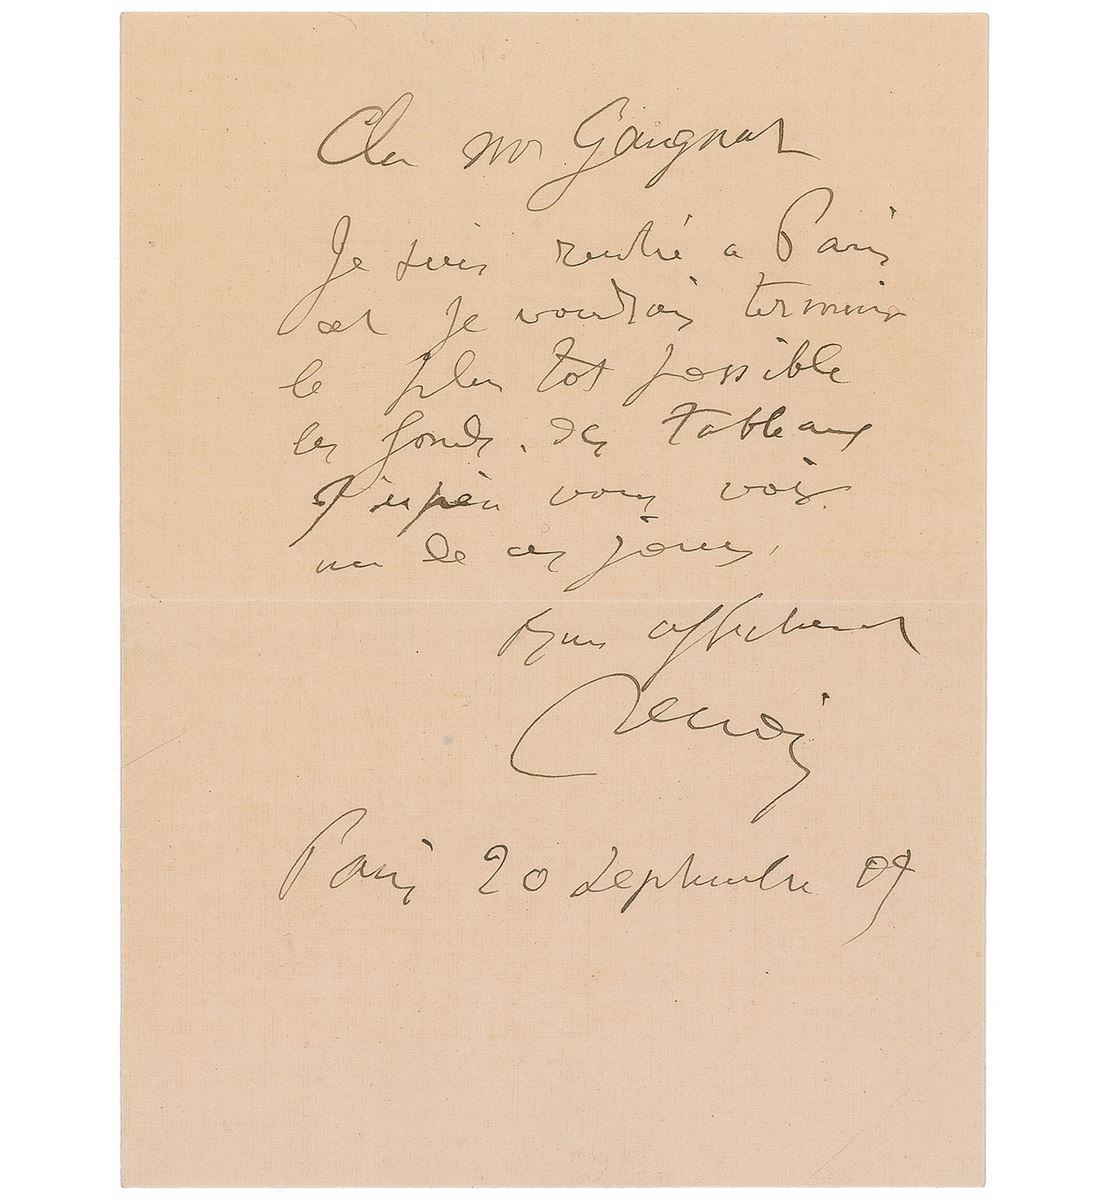 Cher Mr Gaugnat
Je suis rentré a Paris
et je voudrais terminer
le plus tot possible
les fonds. des tableaux
J'espère vous voir.
un de ces jours.
Renoir
Paris 20 septembre 09